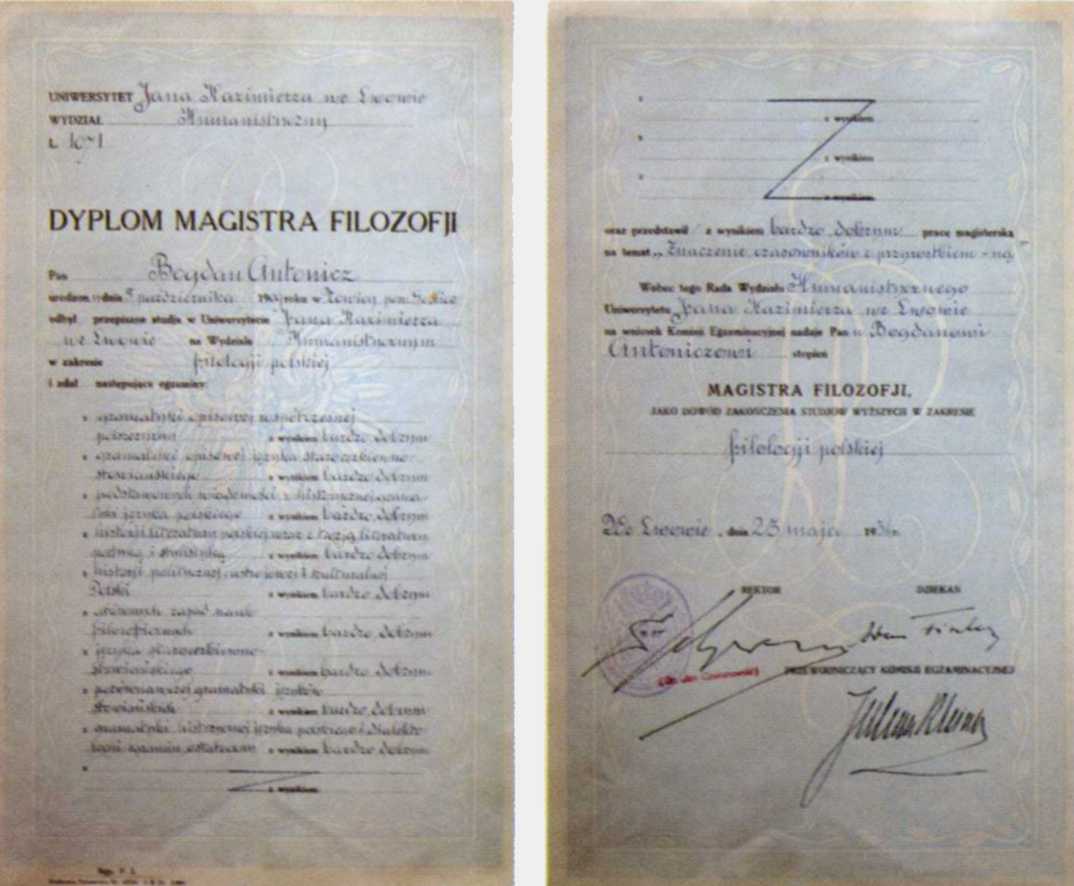 UNIWERSYTET Jana Kazimierza we Lwowie
WYDZIAŁ Humanistyczny
L. 1071
DYPLOM MAGISTRA FILOZOFJI
Pan Bogdan Antonicz
urodzony dnia 5 października roku w
odbył przepisane studja w Uniwersytecie Jana Kazimierza
we Lwowie na Wydziale Humanistycznym
w zakresie filologji polskiej
i zdał następujące egzaminy:
z gramatyki opisowej współczesnej
polszczyzny z wynikiem bardzo dobrym
z gramatyki opisowej języka starocerkiewno-
słowiańskiego z wynikiem bardzo dobrym
z podstawowych wiadomości z historycznej grama-
tyki języka polskiego z wynikiem bardzo dobrym
z historji literatury polskiej wraz z teorją literatury
poetyką i stylistyką z wynikiem bardzo dobrym
z historji politycznej, ustrojowej i kulturalnej
Polski z wynikiem bardzo dobrym
z głównych zasad nauk
filozoficznych z wynikiem bardzo dobrym
z języka starocerkiewno-
słowiańskiego z wynikiem bardzo dobrym
z porównawczej gramatyki języków
słowiańskich z wynikiem bardzo dobrym
z gramatyki historycznej języka polskiego i dialekto-
logji z wynikiem bardzo dobrym
z
z wynikiem
z
z wynikiem
z
z wynikiem
z
z wynikiem
oraz przedstawił z wynikiem bardzo dobrym pracę magisterską
na temat „Znaczenie czasowników z przyrostkiem -ną"
Wobec tego Rada Wydziału Humanistycznego
Uniwersytetu Jana Kazimierza we Lwowie
na wniosek Komisji Egzaminacyjnej nadaje Panu Bogdanowi
Antoniczowi stopień
MAGISTRA FILOZOFJI,
JAKO DOWÓD ZAKOŃCZENIA STUDJÓW WYŻSZYCH W ZAKRESIE
filologji polskiej
We Lwowie, dnia 25 maja 193
REKTOR DZIEKAN
PRZEWODNICZĄCY KOMISJI EGZAMINACYJNEJ
Juliusz Kleiner